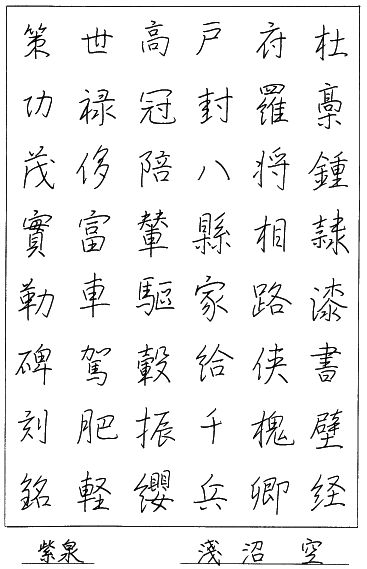 杜稾鍾隷漆書壁経
府羅将相路侠槐卿
戸封八縣家給千兵
高冠陪輦驅轂振纓
世禄侈富車駕肥軽
策功茂實勒碑刻銘
紫泉 淺沼 空